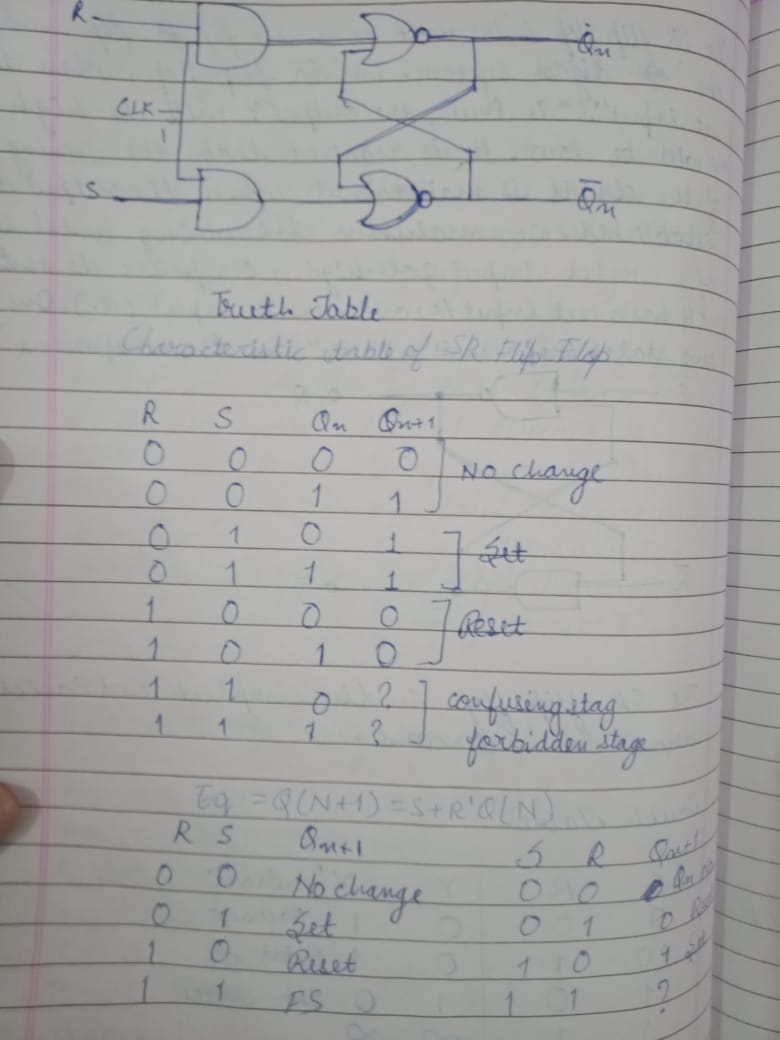 R
Q̇n
CLK
1
S
Q̅n
Truth Table
Characteristic table of SR Flip Flop
R S Qn Qn+1
0 0 0 0
0 0 1 1
No change
0 1 0 1
0 1 1 1
Set
1 0 0 0
1 0 1 0
Reset
1 1 0 ?
1 1 1 ?
confusing stag
forbidden stage
Eq = Q(N+1) = S+R'Q(N)
R S Qn+1
0 0 No change
0 1 Set
1 0 Reset
1 1 FS
S R Qn+1
0 0 Qn
0 1 0
1 0 1 Set
1 1 ?